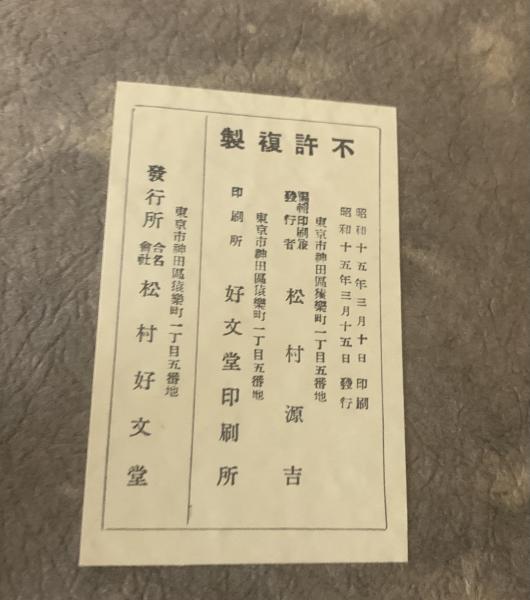 不許複製
昭和十五年三月十日 印刷
昭和十五年三月十五日 發行
東京市神田區猿樂町一丁目五番地
編輯印刷兼
發行者 松村源吉
東京市神田區猿樂町一丁目五番地
印刷所 好文堂印刷所
東京市神田區猿樂町一丁目五番地
發行所 合名會社 松村好文堂